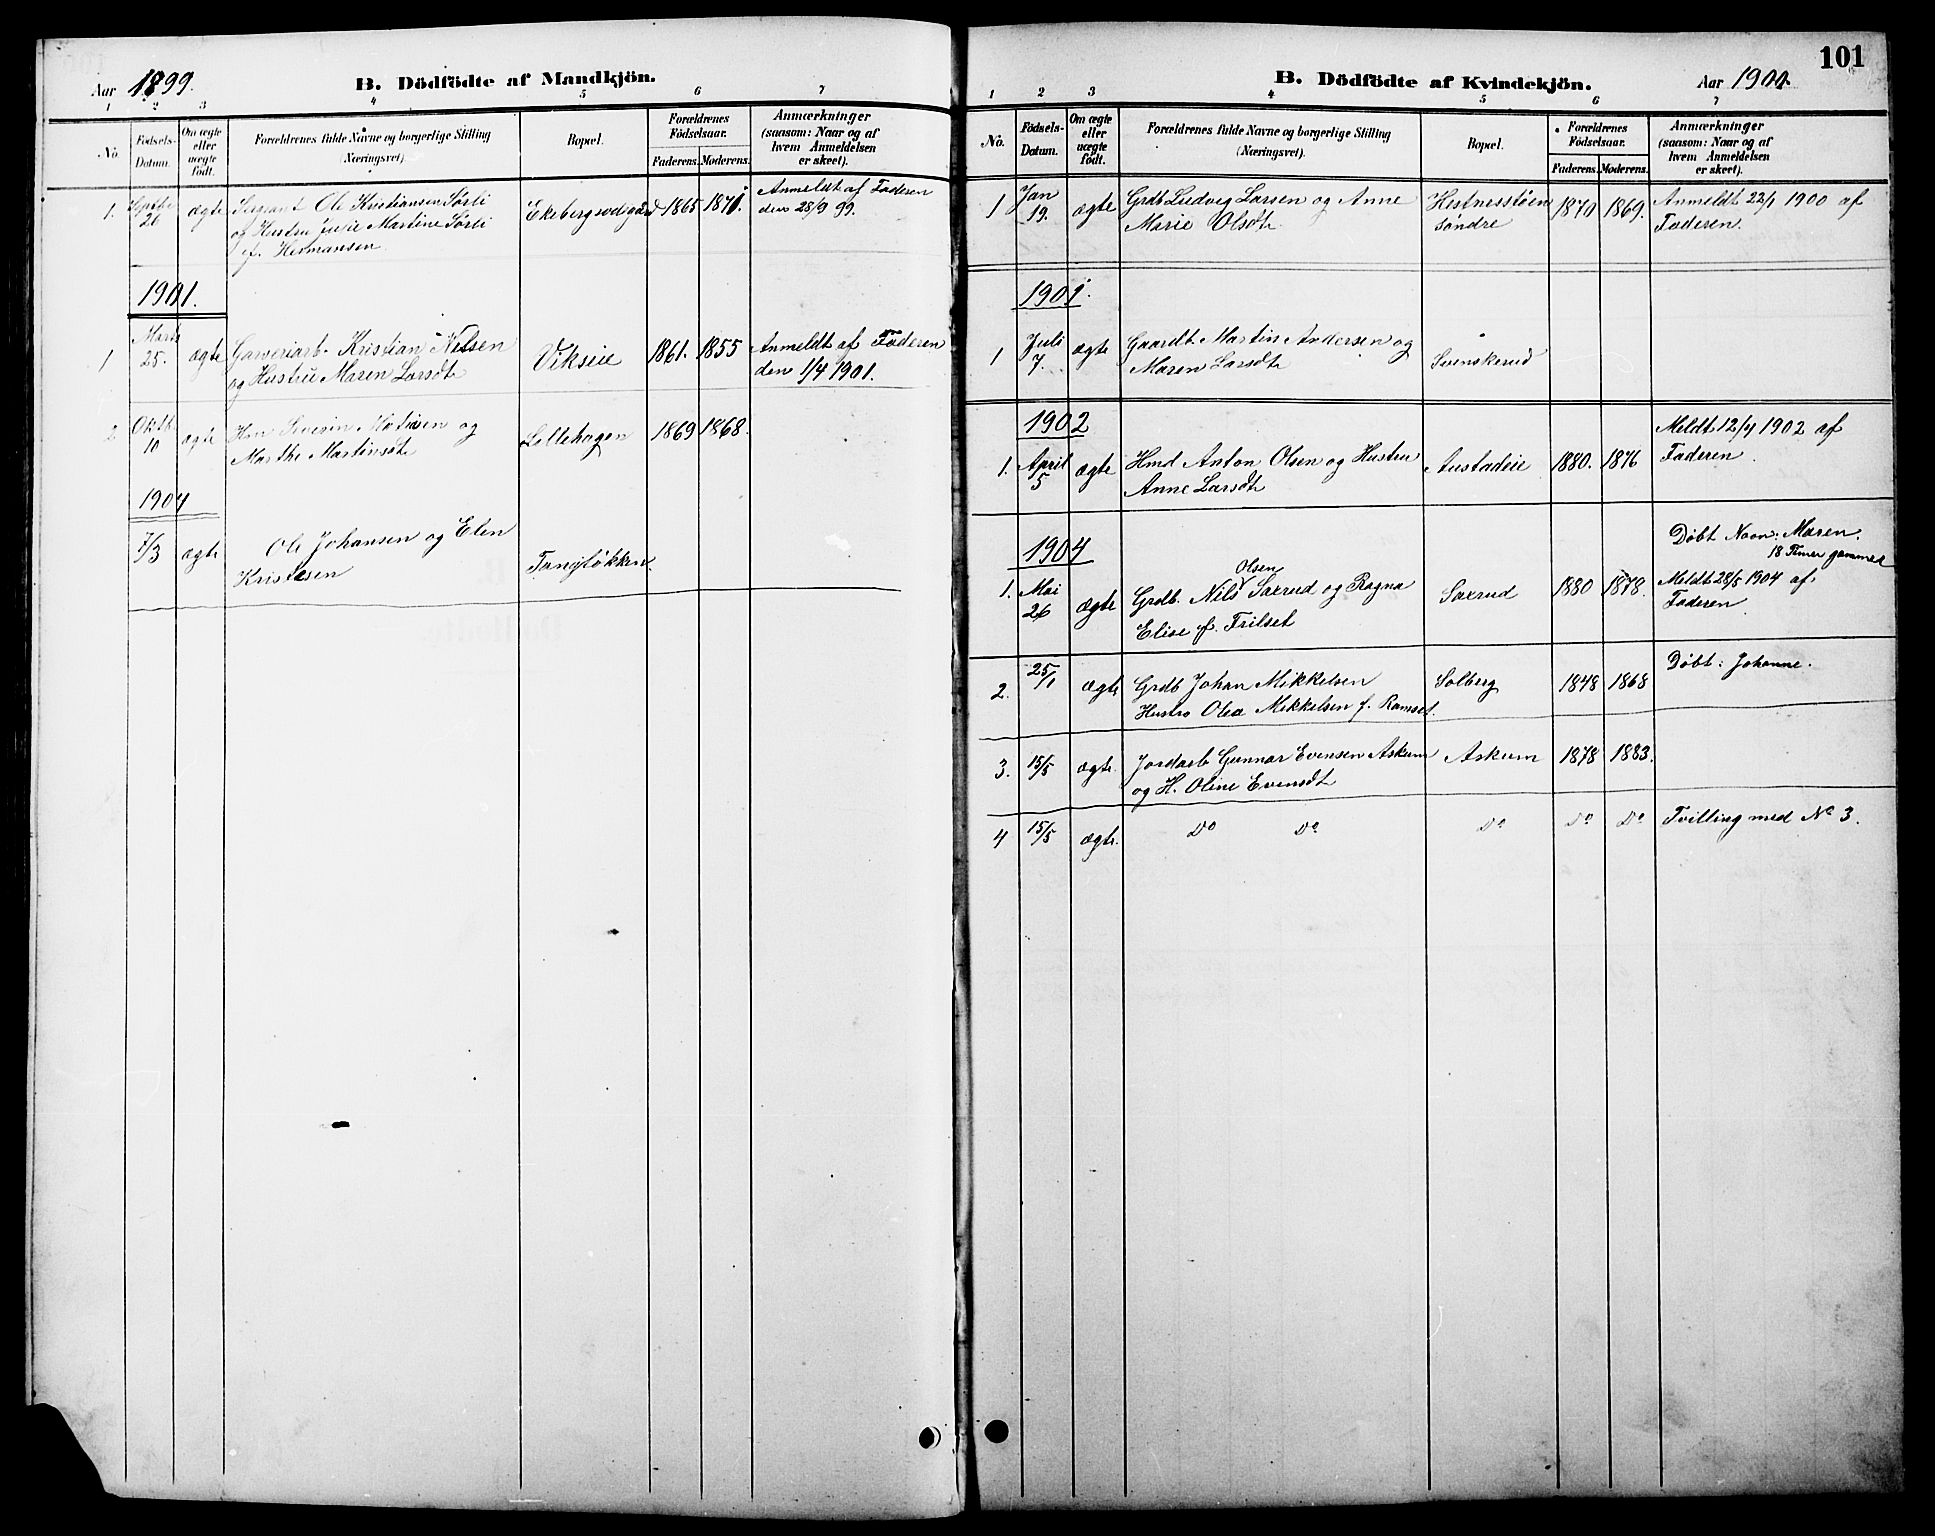 Aar 1899.
B. Dödfödte af Mandkjön.
1 2 3 4 5 6 7
No.
Födsels-
Datum.
Om ægte
eller
uægte
födt.
Forældrenes fulde Navne og borgerlige Stilling
(Næringsvei).
Bopæl.
Forældrenes
Födselsaar.
Faderens. Moderens.
Anmærkninger
(saasom: Naar og af
hvem Anmeldelsen
er skeet).
1. Septbr 26 ægte Sergeant Ole Kristiansen Sørli
og Hustru Julie Martine Sørli
f. Hermansen
1865 1871.
Anmeldt af Faderen
den 28/9 99.
1901.
1 Marts 25. ægte Garveriarb. Kristian Nilsen
og Hustru Maren Larsdt
Vikseie 1861. 1855
Anmeldt af Faderen
den 1/4 1901.
2 Oktb. 10 ægte Hm Severin Matisen og
Marthe Martinsdt
Lillehagen 1869 1868.
1904
7/3 ægte Ole Johansen og Elen
Tangløkken
B. Dödfödte af Kvindekjön.
Aar 1900.
101
1 2 3 4 5 6 7
No.
Födsels-
Datum.
Om ægte
eller
uægte
födt.
Forældrenes fulde Navne og borgerlige Stilling
(Næringsvei).
Bopæl.
Forældrenes
Födselsaar.
Faderens. Moderens.
Anmærkninger
(saasom: Naar og af
hvem Anmeldelsen
er skeet).
1 Jan 19. ægte Grdb Ludvig Larsen og Anne
Marie Olsdt.
Hestnesstøen
søndre
1870 1869.
Anmeldt 22/1 1900 af
Faderen.
1901.
1 Juli 7. ægte Gaardt. Martin Andersen og
Maren Larsdt
Svenskerud
1902
1. April 5 ægte Hmd Anton Olsen og Hustru
Anne Larsdt
Austadeie 1880. 1876
Meldt 12/4 1902 af
Faderen.
1904
1. Mai 26 ægte Grdb. Nils Olsen Saxrud og Ragna
Elise f. Frilset
Saxrud 1880 1878.
Døbt Navn: Maren.
18 Timer gammel
Meldt 28/5 1904 af
Faderen.
2. 25/1 ægte Grdb Johan Mikkelsen
Hustro Olea Mikkelsen f. Ramset.
Solberg 1848 1868
Døbt: Johanne.
3. 15/5 ægte. Jordarb Gunnar Evensen Askum
og H. Oline Evensdt
Askum 1878 1883.
4 15/5 ægte. Do Do Do Do Do Tvilling med No 3.